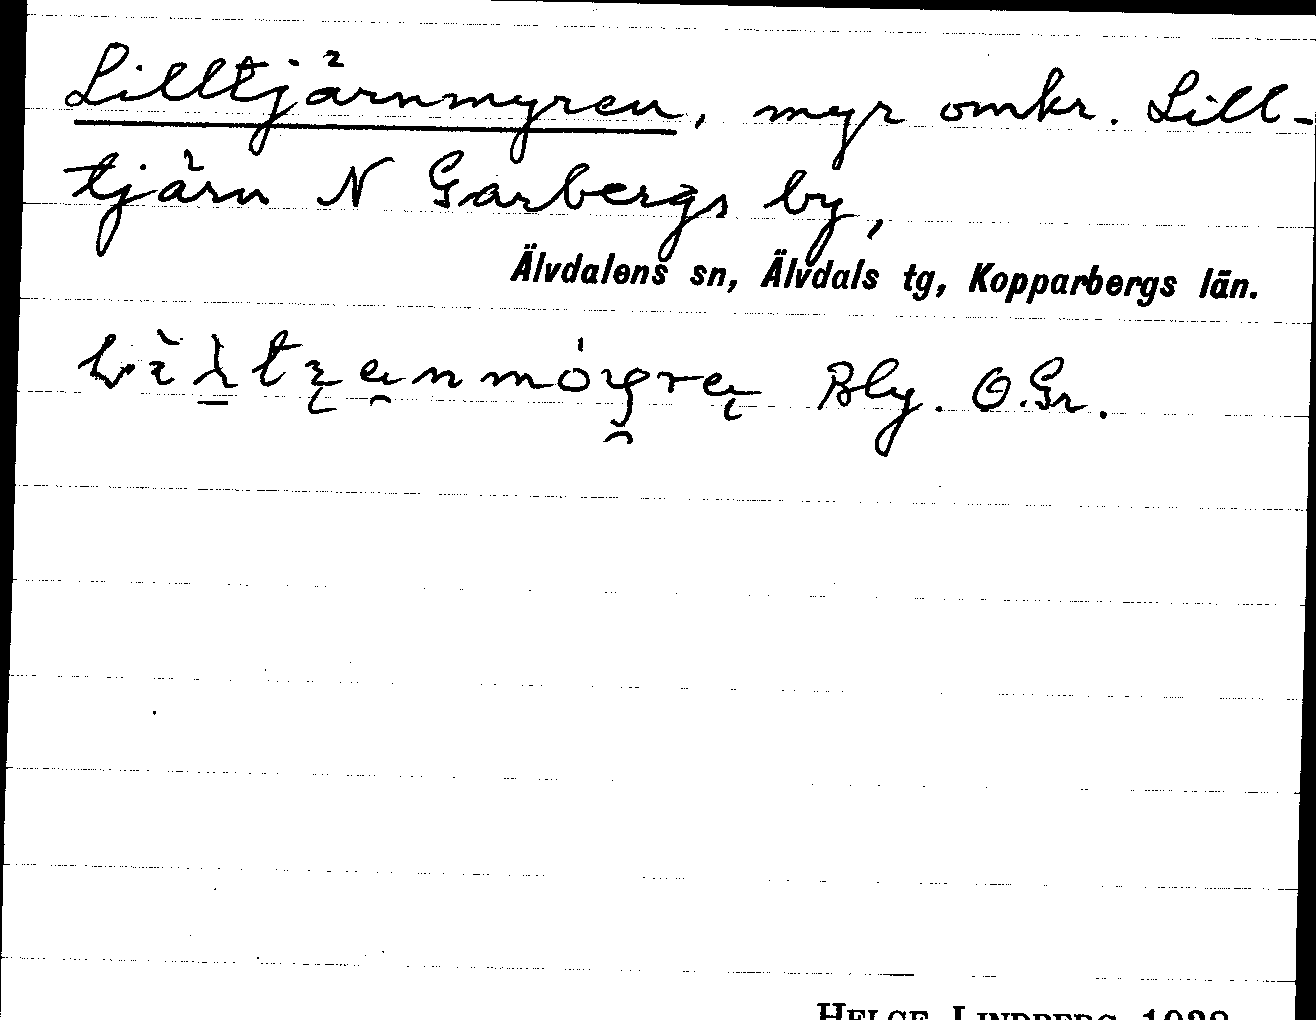 Lilltjärnmyren, myr omkr. Lill-
tjärn N Garbergs by,
Älvdalens sn, Älvdals tg, Kopparbergs län.
Bly. O.Gr.
HELGE LINDBERG 1938